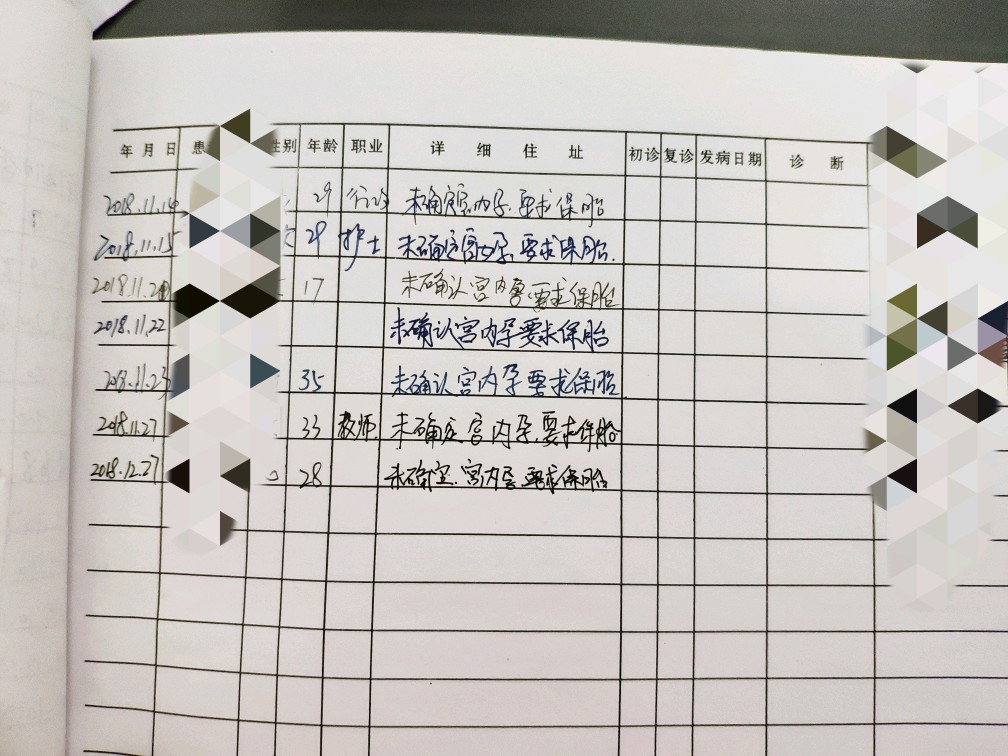 年月日 患 性别 年龄 职业 详细住址 初诊 复诊 发病日期 诊断
2018.11.14 29 未确定宫内孕.要求保胎
2018.11.15 29 护士 未确定宫内孕.要求保胎.
2018.11.20 17 未确认宫内孕.要求保胎
2018.11.22 未确认宫内孕要求保胎
2018.11.23 35 未确认宫内孕要求保胎
2018.11.27 33 教师. 未确定宫内孕.要求保胎
2018.12.27 28 未确定.宫内孕.要求保胎